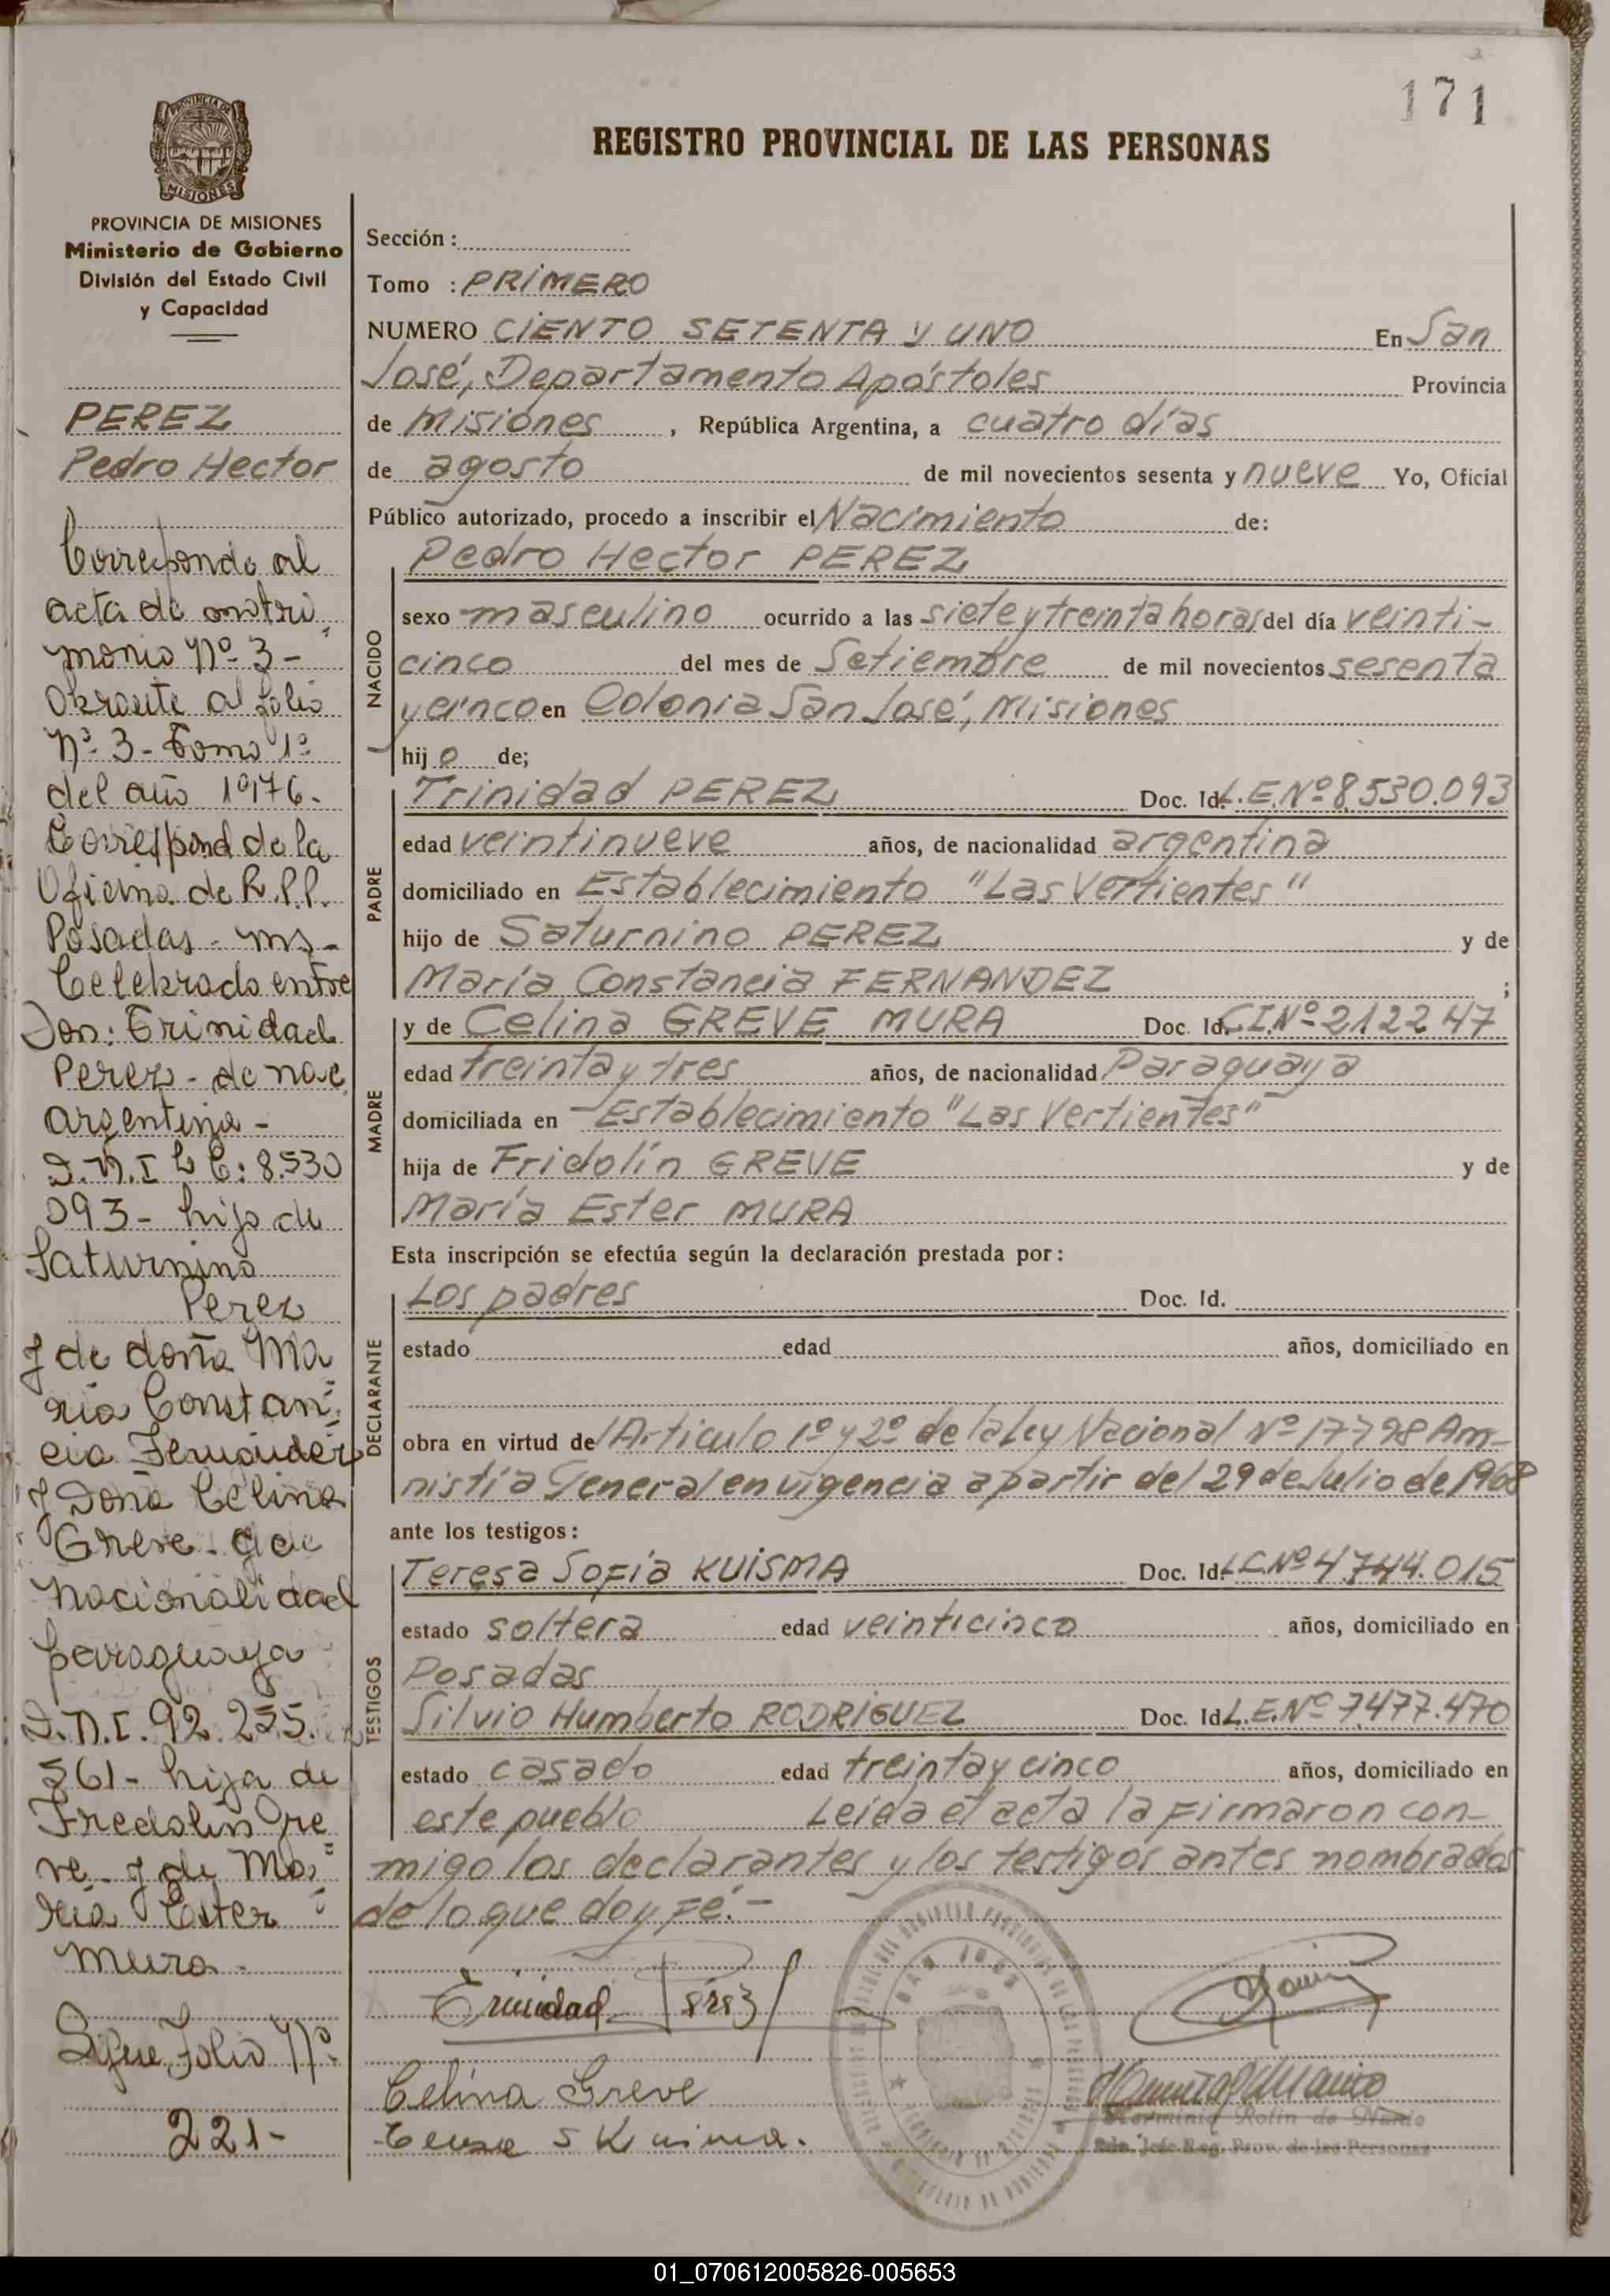 171
PROVINCIA DE MISIONES
REGISTRO PROVINCIAL DE LAS PERSONAS
PROVINCIA DE MISIONES
Ministerio de Gobierno
División del Estado Civil
y Capacidad
PEREZ
Pedro Hector
Corresponde al
acta de matri
monio Nº 3 -
Obrante al folio
Nº 3 - Tomo 1º
del año 1976.
Correspond de la
Oficina de R.P.P.
Posadas - ms -
Celebrado entre
Don: Trinidad
Perez - de nac.
argentina -
D.N.I L E: 8.530
093 - hijo de
Saturnino
Perez
y de doña Ma
ria Constan
cia Fernandez
y Doña Celina
Greve - de
nacionalidad
paraguaya
D.N.I. 92.255.
561 - hija de
Fredolin Gre
ve - y de Ma
ria Ester
Mura -
Sigue Folio Nº
221 -
Sección :
Tomo : PRIMERO
NUMERO CIENTO SETENTA y UNO En San
José, Departamento Apóstoles Provincia
de Misiones , República Argentina, a cuatro días
de agosto de mil novecientos sesenta y nueve Yo, Oficial
Público autorizado, procedo a inscribir el Nacimiento de:
Pedro Hector PEREZ
NACIDO
sexo masculino ocurrido a las siete y treinta horas del día veinti-
cinco del mes de Setiembre de mil novecientos sesenta
y cinco en Colonia San José, Misiones
hijo de;
PADRE
Trinidad PEREZ Doc. Id. L.E.Nº 8.530.093
edad veintinueve años, de nacionalidad argentina
domiciliado en Establecimiento "Las Vertientes"
hijo de Saturnino PEREZ y de
María Constancia FERNANDEZ ;
MADRE
y de Celina GREVE MURA Doc. Id. C.I.Nº 212247
edad treinta y tres años, de nacionalidad Paraguaya
domiciliada en Establecimiento "Las Vertientes"
hija de Fridolín GREVE y de
María Ester MURA
Esta inscripción se efectúa según la declaración prestada por:
DECLARANTE
Los padres Doc. Id.
estado edad años, domiciliado en
obra en virtud del Articulo 1º y 2º de la Ley Nacional Nº 17798 Am-
nistía General en vigencia a partir del 29 de Julio de 1968
ante los testigos:
TESTIGOS
Teresa Sofía KUISMA Doc. Id. L.C.Nº 4.744.015
estado soltera edad veinticinco años, domiciliado en
Posadas
Silvio Humberto RODRIGUEZ Doc. Id L.E.Nº 7.477.470
estado casado edad treinta y cinco años, domiciliado en
este pueblo Leida el acta la firmaron con-
migo los declarantes y los testigos antes nombrados
de lo que doy fé.-
Trinidad Perez
Celina Greve
Teresa S Kuisma.
SAN JOSE
Herminia Rolin de Nanio
Jefe Reg. Prov. de las Personas
01_070612005826-005653